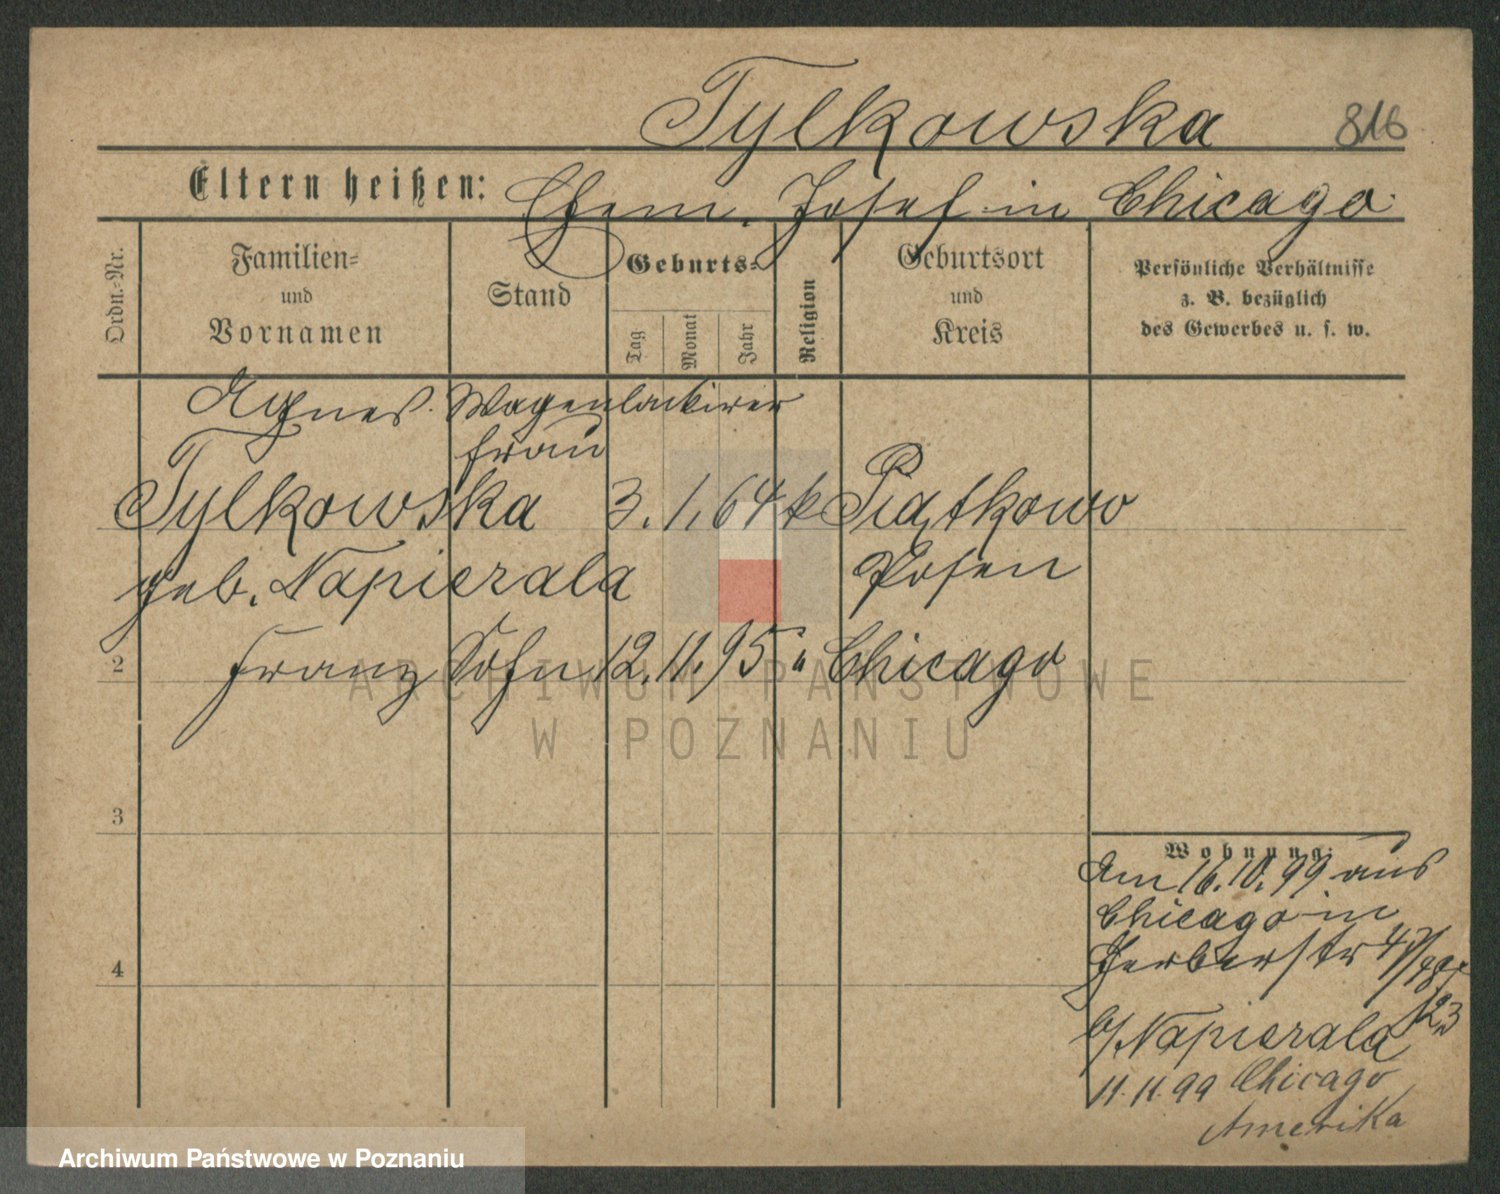 Tylkowska 816
Eltern heißen: Ehem. Josef in Chicago
Ordn.-Nr.
Familien-
und
Vornamen
Stand
Geburts-
Tag
Monat
Jahr
Religion
Geburtsort
und
Kreis
Persönliche Verhältnisse
z. B. bezüglich
des Gewerbes u. s. w.
Agnes Wagenlackirer
frau
Tylkowska 3. 1. 64 k Piątkowo
geb. Napierala Posen
2 Franz Sohn 12. 11. 95 " Chicago
3
4
Wohnung:
Am 16.10.99 aus
Chicago in
Gerberstr 47
b/ Napierala
11. 11. 99 Chicago
Amerika
ARCHIWUM PAŃSTWOWE
W POZNANIU
Archiwum Państwowe w Poznaniu